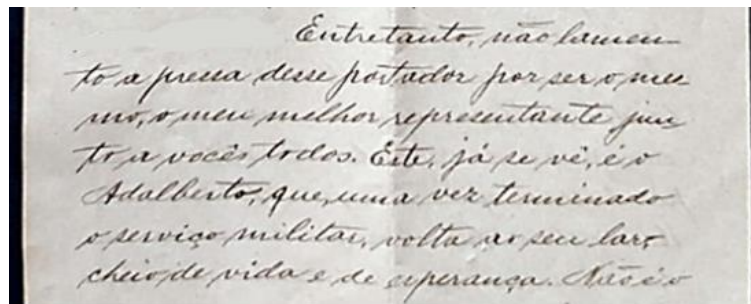 Entretanto, não lamen-
to a pressa desse portador por ser o mes-
mo, o meu melhor representante jun-
to a vocês todos. Este, já se vê, é o
Adalberto, que, uma vez terminado
o serviço militar, volta ao seu lar,
cheio de vida e de esperança. Não é o